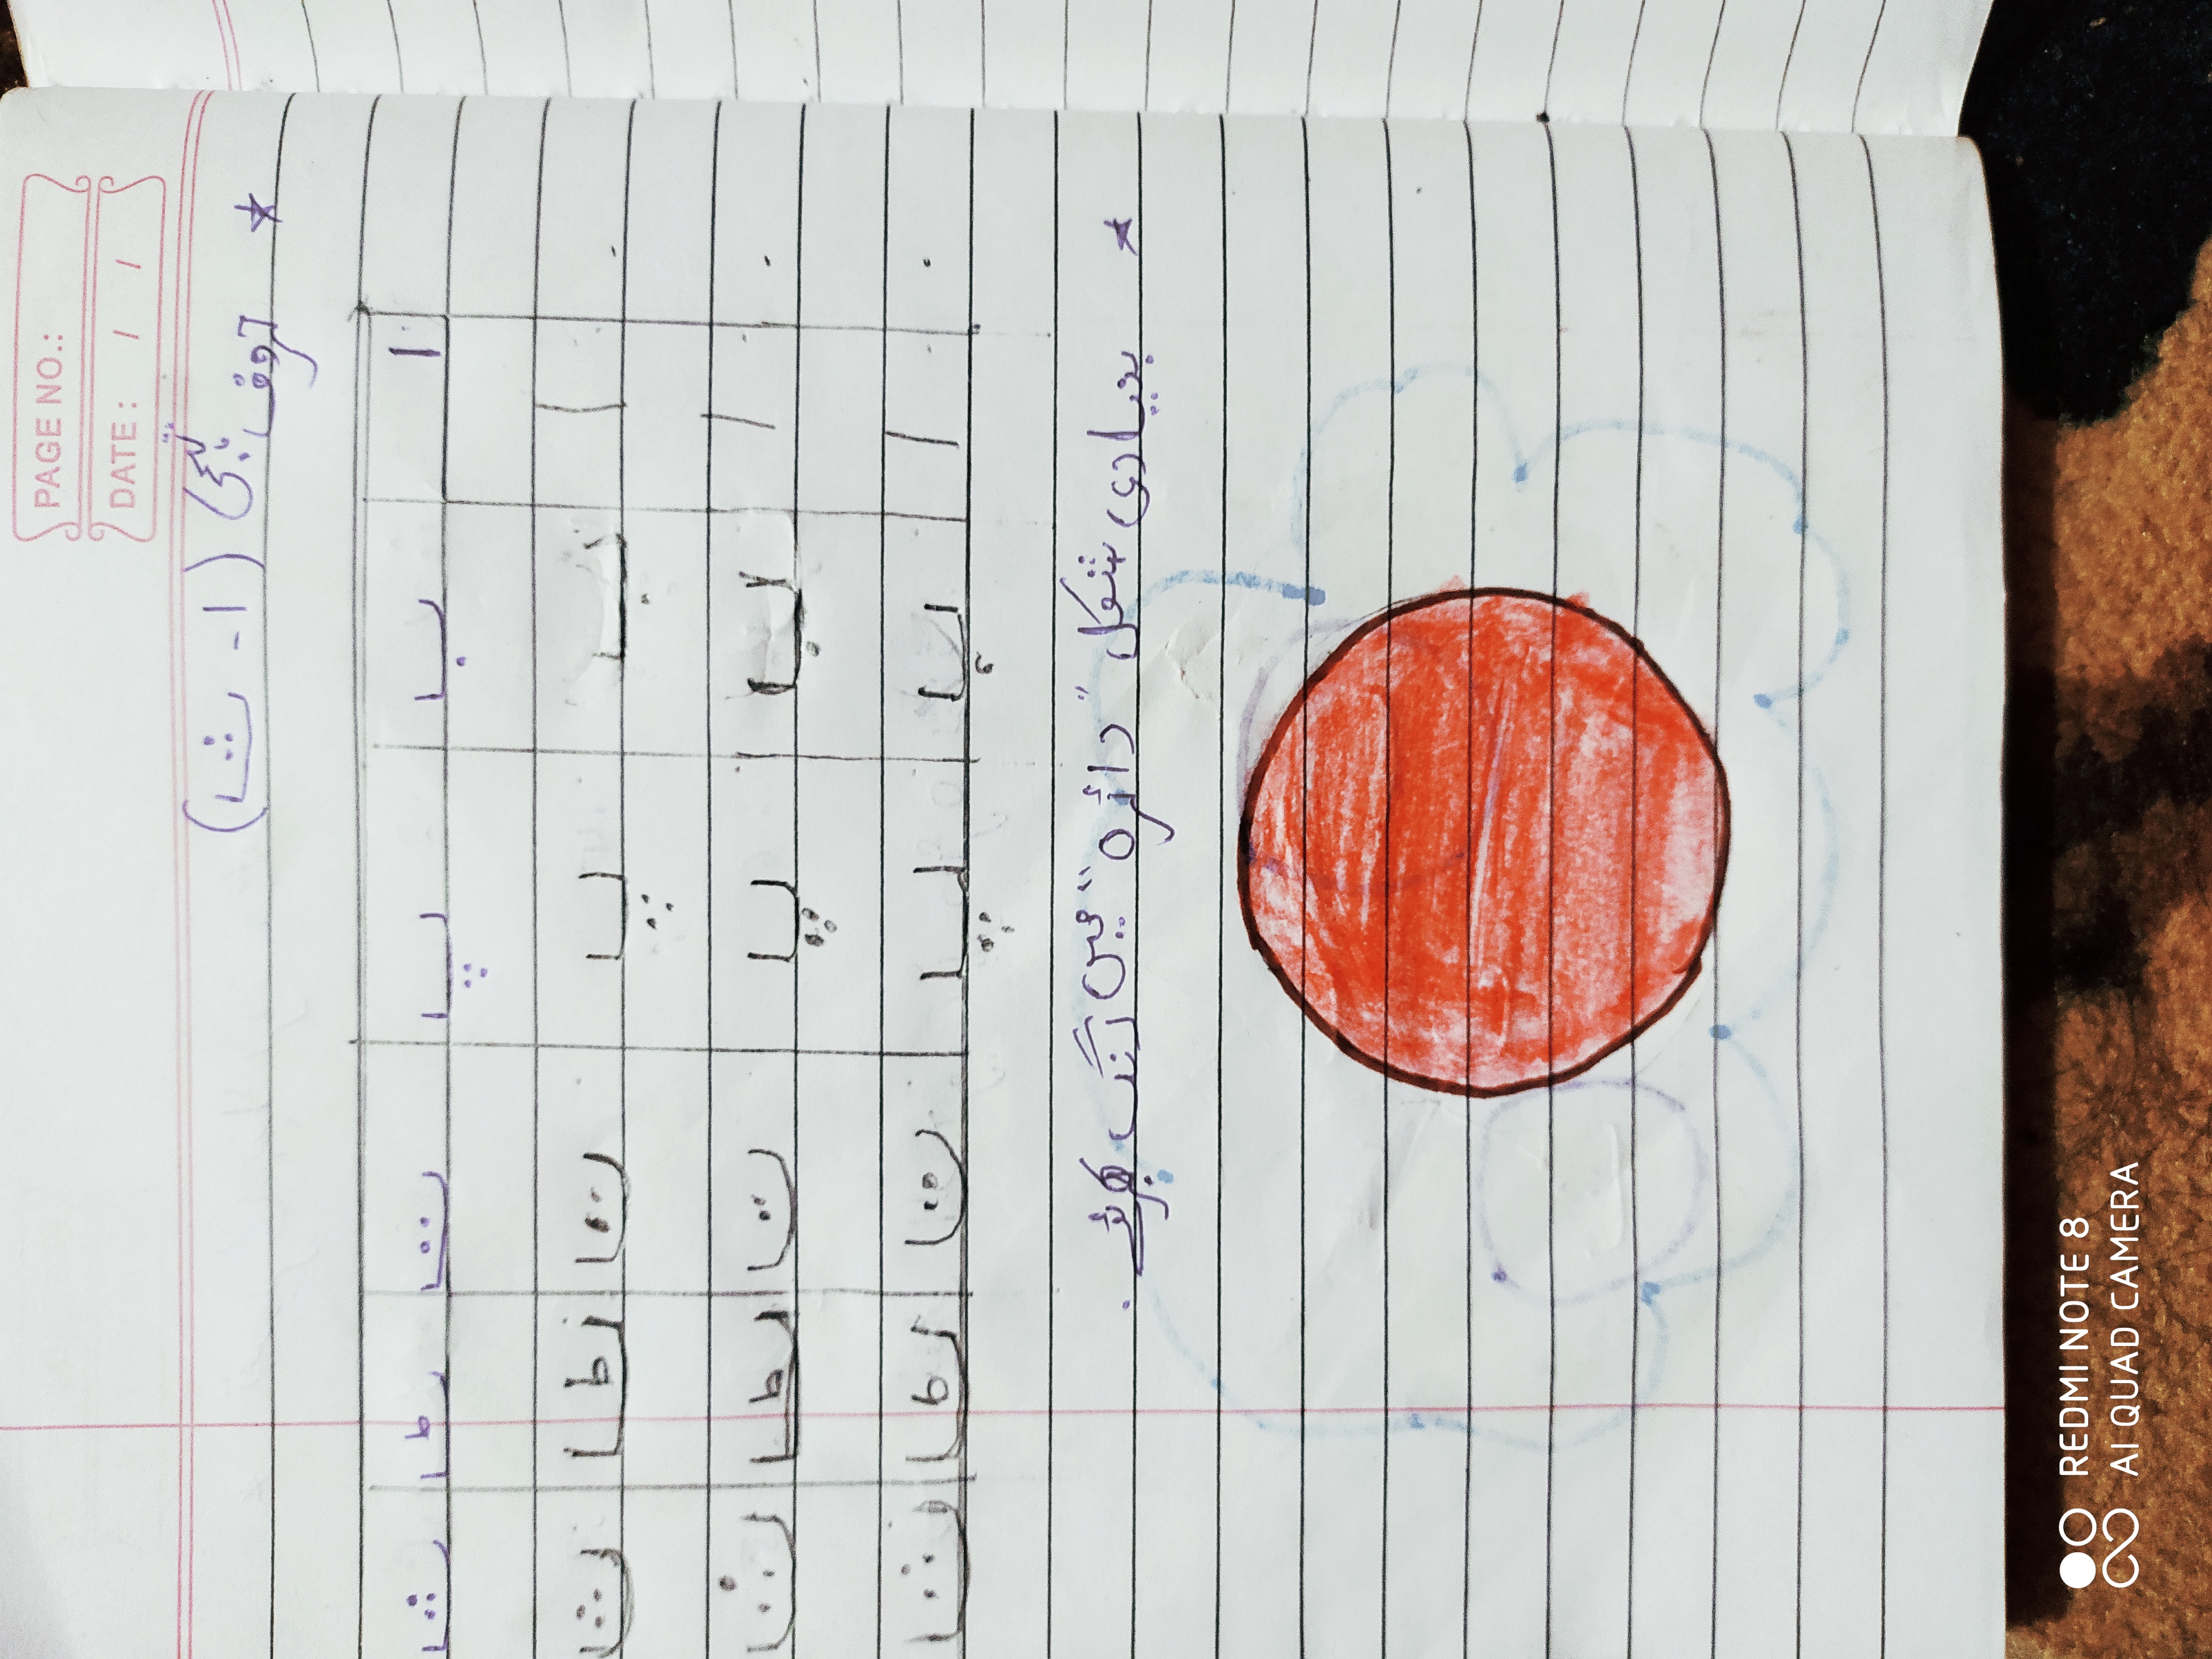 PAGE NO.:
DATE: / /
* حروفِ تہجّی (ا - ث)
ا ب پ ت ٹ ث
ا ب پ ت ٹ ث
ا ب پ ت ٹ ث
ا ب پ ت ٹ ث
* بنیادی شکل "دائرہ" میں رنگ بھریئے .
REDMI NOTE 8
AI QUAD CAMERA